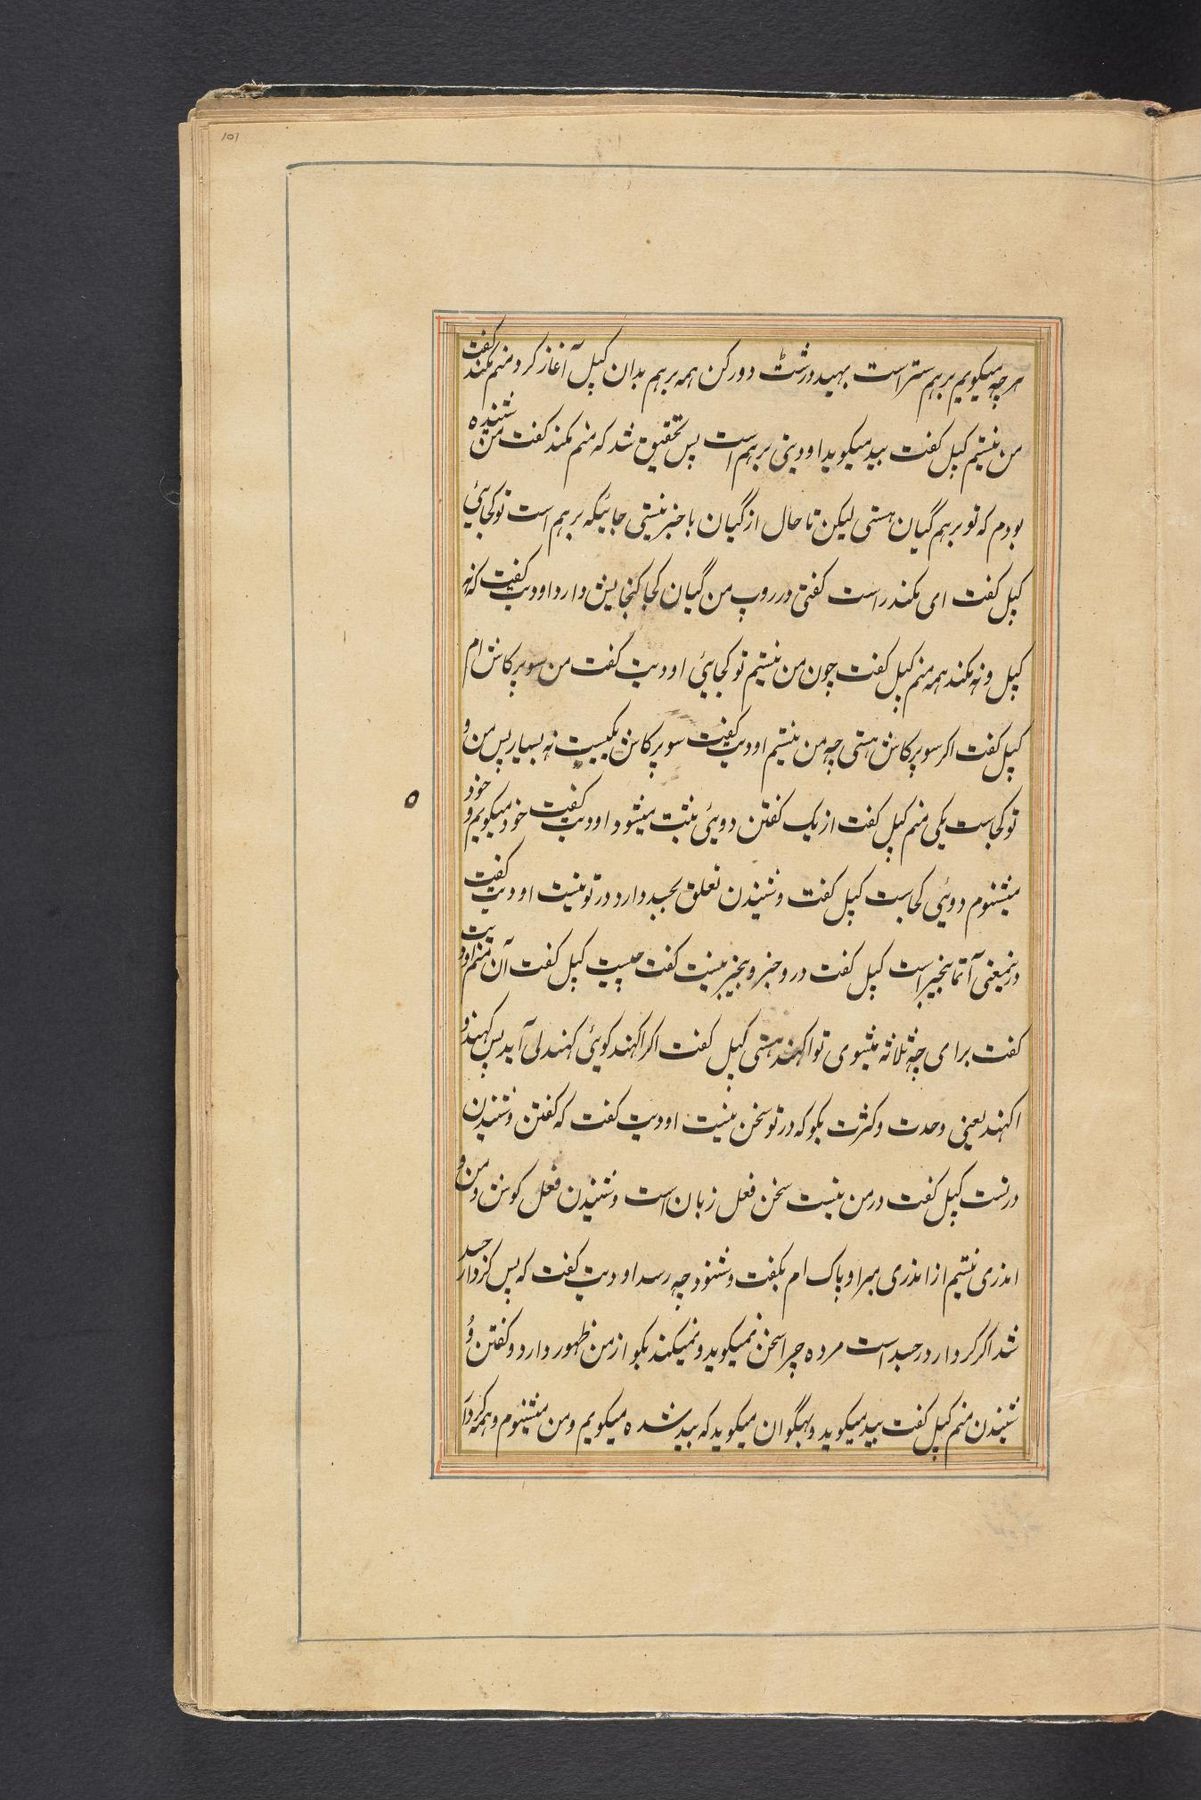 101
هرچه میکویم برهم ستراست بهید درشٹ دور کن همه برهم بدان کپل آغاز کرد منم مکند گفت
من نیستیم کپل کفت بید میکوید اودیتی برهم است پس تحقیق شد که منم مکند کفت من شنیده
بودم که تو برهم گیان هستی لیکن تا حال از گیان با خبر نیستی جائیکه برهم است تو کجائی
کپل کفت ای مکند راست کفتی در روپ من گیان کجا کنجایش دارد اودیت کفت که نه
کپل و نه مکند همه منم کپل کفت چون من نیستیم تو کجائی اودیت کفت من سوپرکاش ام
کپل کفت اکر سوپرکاش هستی چه من نیستیم اودیت کفت سوپرکاش یکیست نه بسیار پس من و
تو کجاست یکی منم کپل کفت از یک کفتن دوئی ثبت میشود اودیت کفت خود میکویم و خود
میشنوم دوئی کجاست کپل کفت و شنیدن تعلق بجسد دارد در تو نیست اودیت کفت
درینمعنی آتما بیخبر است کپل کفت در و خبر و بیخبر نیست کفت چیست کپل کفت آن منم اودیت
کفت برای چه ثلاثه میشوی تو اکهند هستی کپل کفت اکر اکهند کوئی کهند لی آید پس کهند و
اکهند یعنی وحدت و کثرت بکو که در تو سخن نیست اودیت کفت که کفتن و شنیدن
درتست کپل کفت در من نیست سخن فعل زبان است و شنیدن فعل کوش و من و
اندری نیستیم از اندری مبرا و پاک ام بکفت و شنود چه رسد اودیت کفت که پس کردار جسد
شد اکر کردار در جسد است مرده چرا سخن نمیکوید و نمیکند بکو از من ظهور دارد و کفتن و
شنیدن منم کپل کفت بید میکوید و بهگوان میکوید که بید شده میکویم و من میشنوم و همه کردار